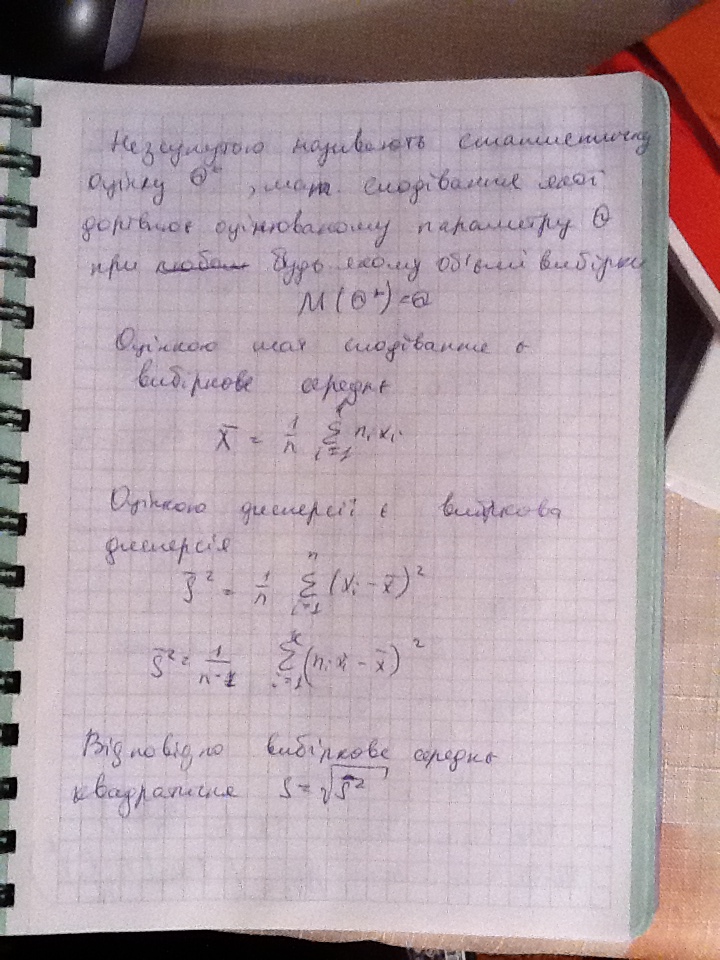 Незсунутою називають статистичну
оцінку Θ*, мат. сподівання якої
дорівнює оцінюваному параметру Θ
при будь якому об'ємі вибірки
M(Θ*)=Θ
Оцінкою мат сподівання є
вибіркове середнє
x̄ = 1/n Σ i=1 nᵢxᵢ
Оцінкою дисперсії є вибіркова
дисперсія
S̄² = 1/n Σ i=1 n (xᵢ - x̄)²
S̄² = 1/n-1 Σ i=1 k (nᵢxᵢ - x̄)²
Відповідно вибіркове середнє
квадратичне S = √S̄²